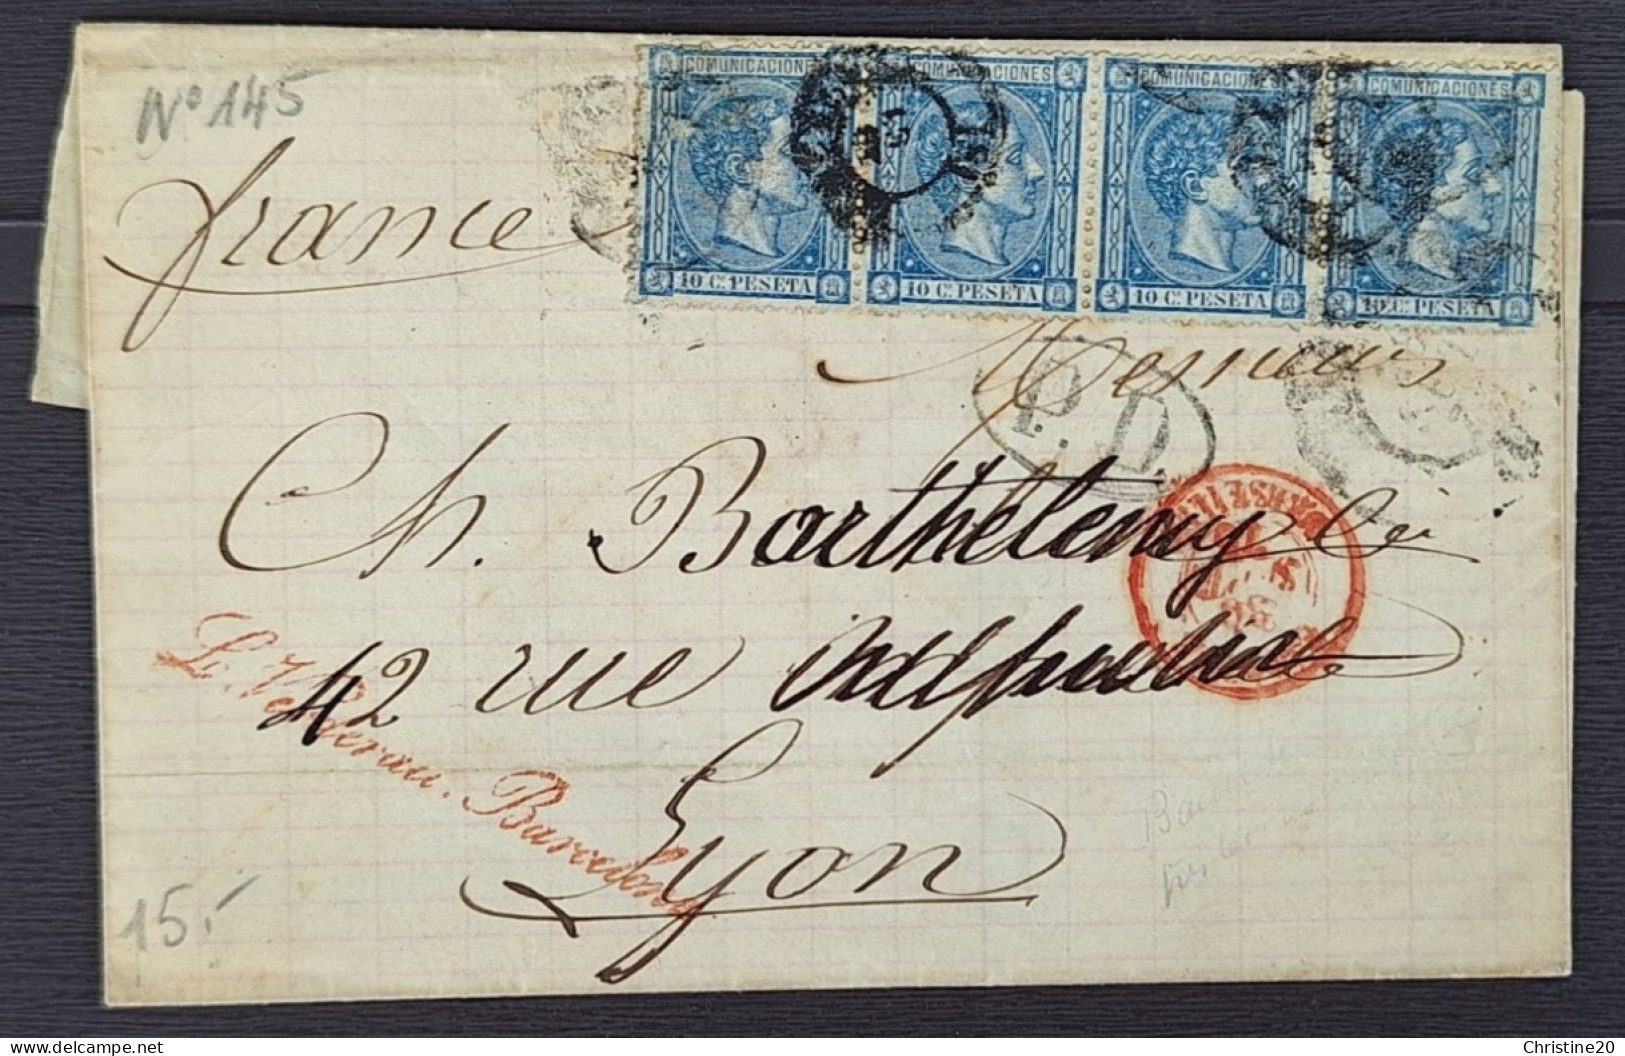 Nº 145
COMUNICACIONES COMUNICACIONES COMUNICACIONES COMUNICACIONES
france
10 C. PESETA 10 C. PESETA 10 C. PESETA 10 C. PESETA
Messieurs
P. D.
Ch. Barthelemy & Cie
42 rue
Barcelona
Lyon
15.-
delcampe.net
Christine20